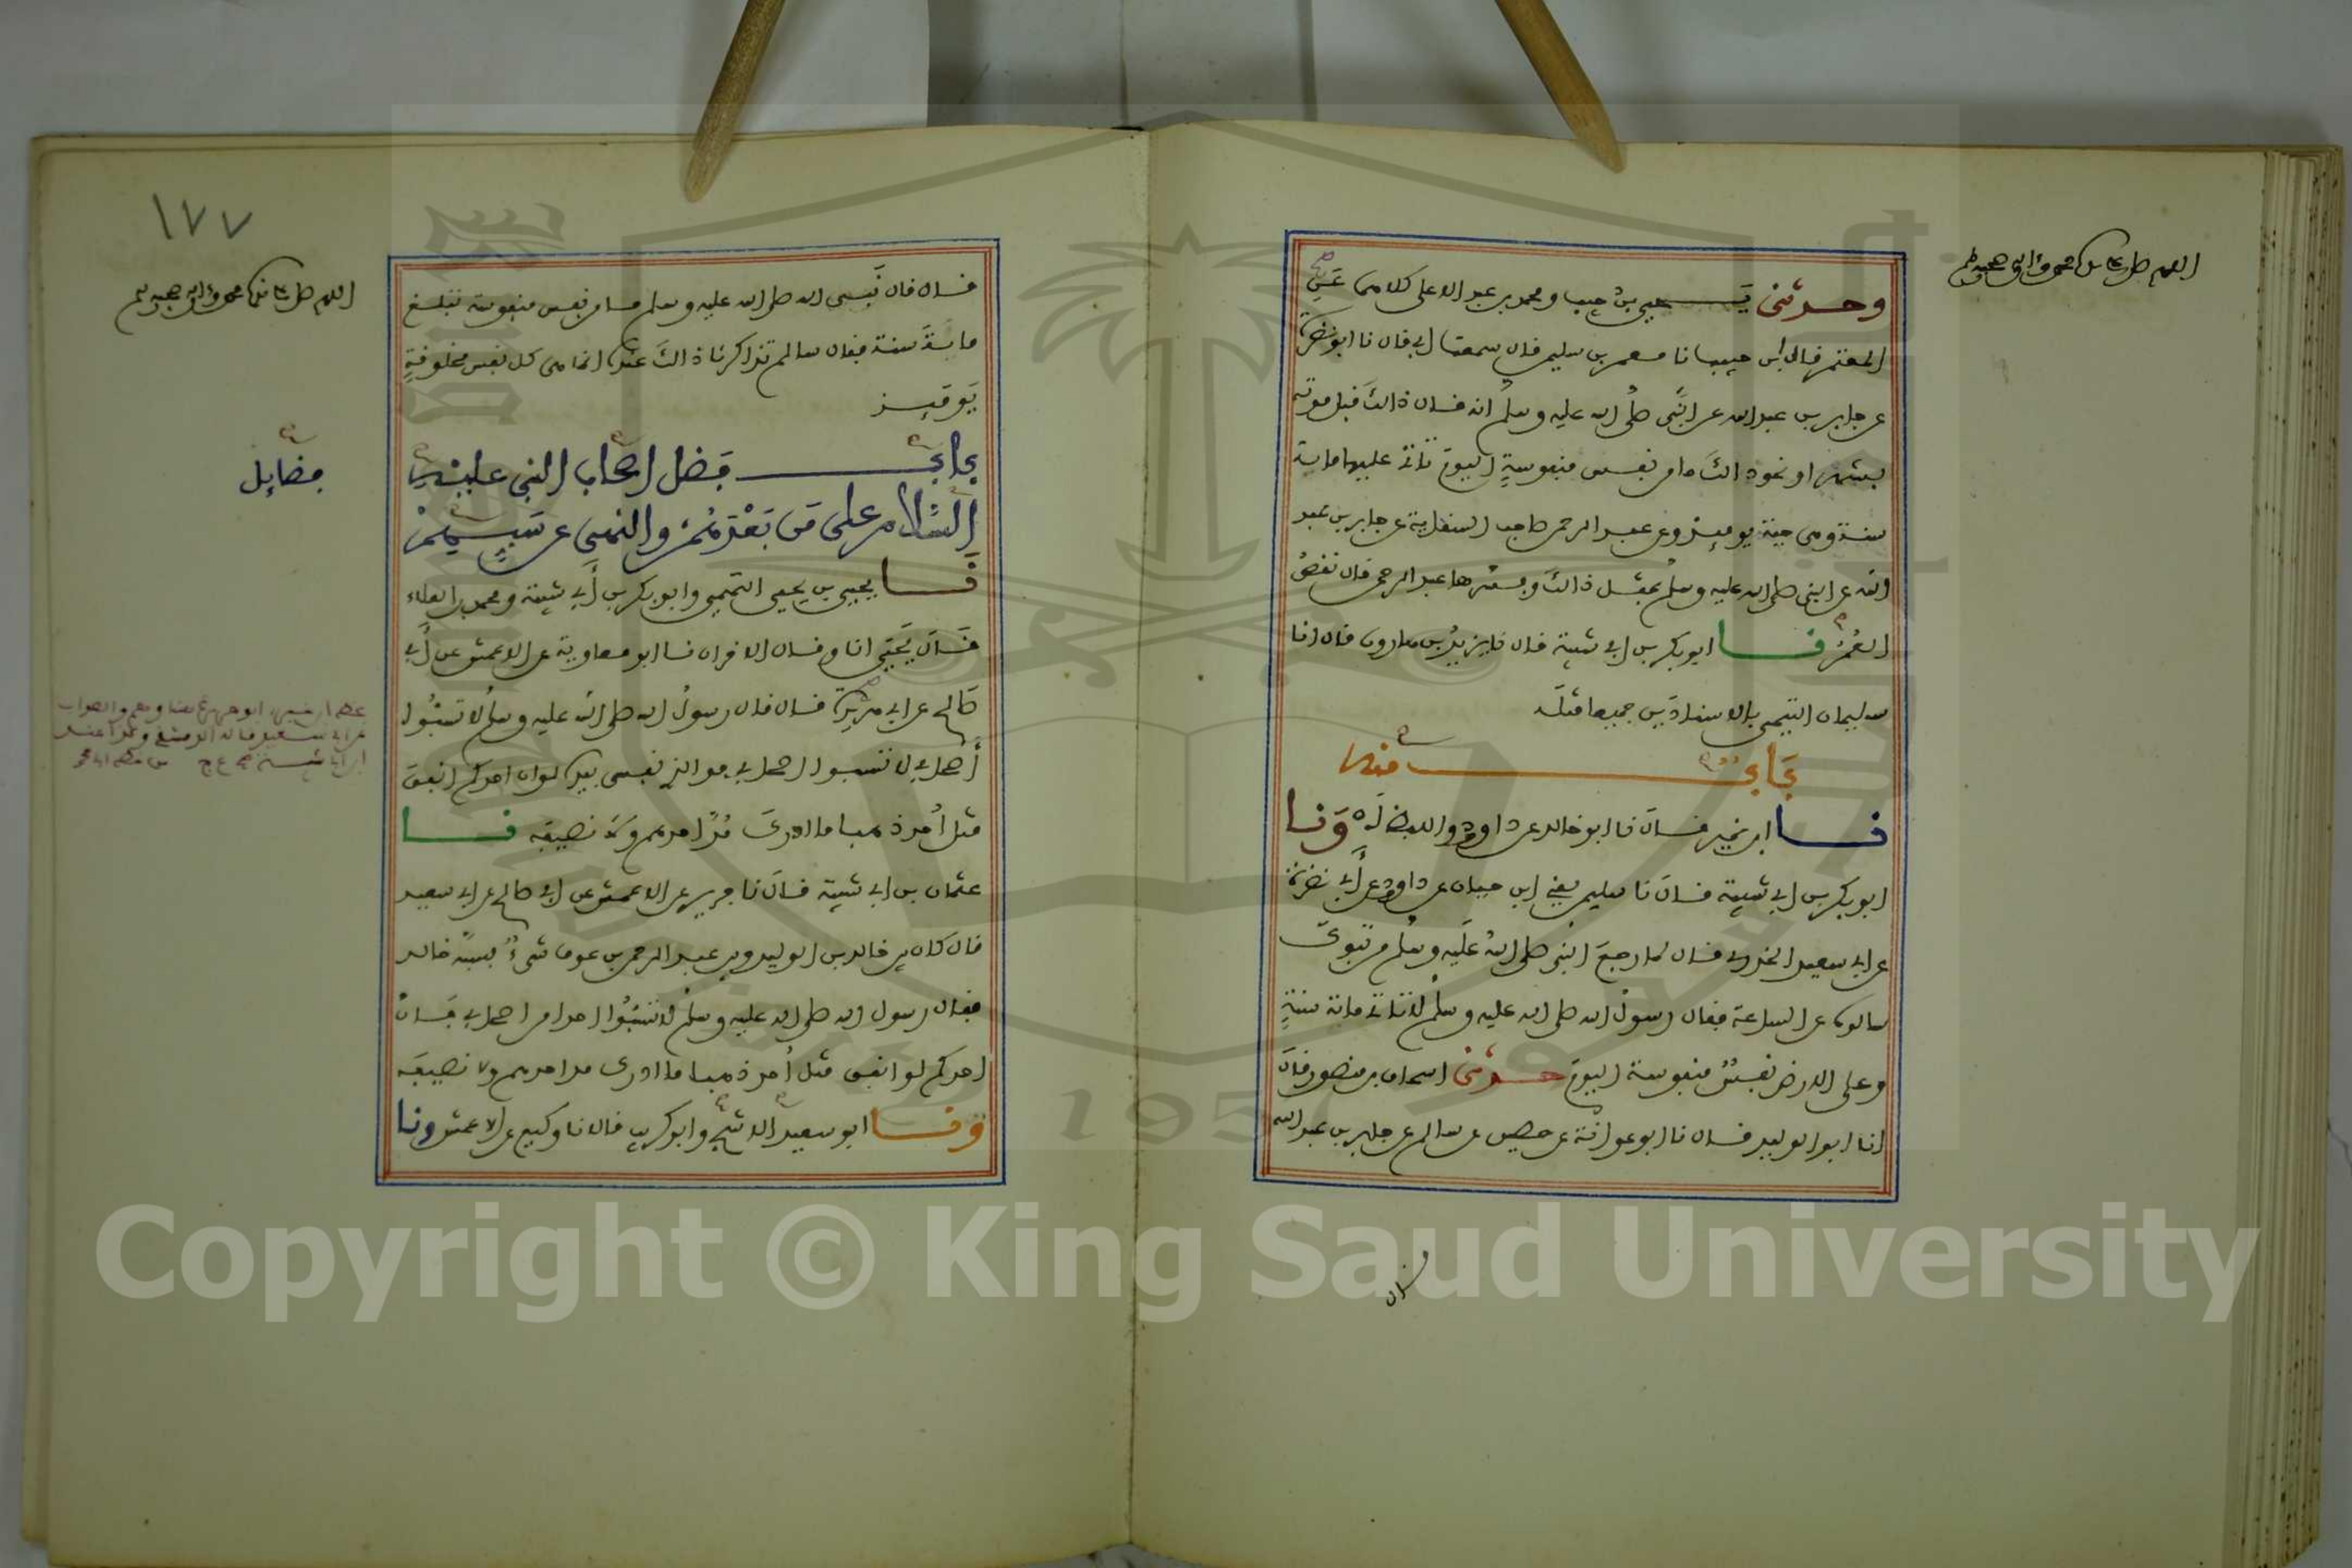 اللهم صل على سيدنا محمد وءاله وصحبه وسلم
وحدثني يحيى بن حبيب ومحمد بن عبد الاعلى كلاهما عن
المعتمر قال ابن حبيب نا معتمر بن سليمن قال سمعت ابي قال نا ابو نضرة
عن جابر بن عبد الله عن النبي صلى الله عليه وسلم انه قال ذالك قبل موته
بشهر او نحو ذالك ما من نفس منفوسة اليوم تاتي عليها ماية
سنة وهي حية يومئذ وعن عبد الرحمن صاحب السقاية عن جابر بن عبد
الله عن النبي صلى الله عليه وسلم بمثل ذالك وفسرها عبد الرحمن قال نقص
العمر نا ابو بكر بن ابي شيبة قال نا يزيد بن هارون قال انا
سليمان التيمي بالاسنادين جميعا مثله
باب منه
نا ابن نمير قال نا ابو خالد عن داوود واللفظ له ونا
ابو بكر بن ابي شيبة قال نا سليمن يعني ابن حيان عن داوود عن أبي نضرة
عن ابي سعيد الخدري قال لما رجع النبي صلى الله عليه وسلم من تبوك
سالوه عن الساعة فقال رسول الله صلى الله عليه وسلم لا تاتي مائة سنة
وعلى الارض نفس منفوسة اليوم حدثني اسحاق بن منصور قال
انا ابو الوليد قال نا ابو عوانة عن حصين عن سالم عن جابر بن عبد الله
قال
١٧٧
اللهم صل على سيدنا محمد وءاله وصحبه وسلم
قال قال نبي الله صلى الله عليه وسلم ما من نفس منفوسة تبلغ
ماية سنة فقال سالم تذاكرنا ذالك عنده انما هي كل نفس مخلوقة
يومئذ
باب فضل اصحاب النبي عليه
السلام على من بعدهم والنهي عن سبهم
فضايل
نا يحيى بن يحيى التميمي وابو بكر بن أبي شيبة ومحمد بن العلاء
قال يحيى انا وقال الاخران نا ابو معاوية عن الاعمش عن أبي
صالح عن ابي هريرة قال قال رسول الله صلى الله عليه وسلم لا تسبوا
أصحابي لا تسبوا اصحابي فوالذي نفسي بيده لو ان احدكم انفق
مثل أحد ذهبا ما ادرك مد احدهم ولا نصيفه نا
عثمان بن ابي شيبة قال نا جرير عن الاعمش عن ابي صالح عن ابي سعيد
قال كان بين خالد بن الوليد وبين عبد الرحمن بن عوف شيء فسبه خالد
فقال رسول الله صلى الله عليه وسلم لا تسبوا احدا من اصحابي فان
احدكم لو انفق مثل أحد ذهبا ما ادرك مد احدهم ولا نصيفه
ونا ابو سعيد الاشج وابو كريب قالا نا وكيع عن الاعمش ونا
Copyright © King Saud University
1957